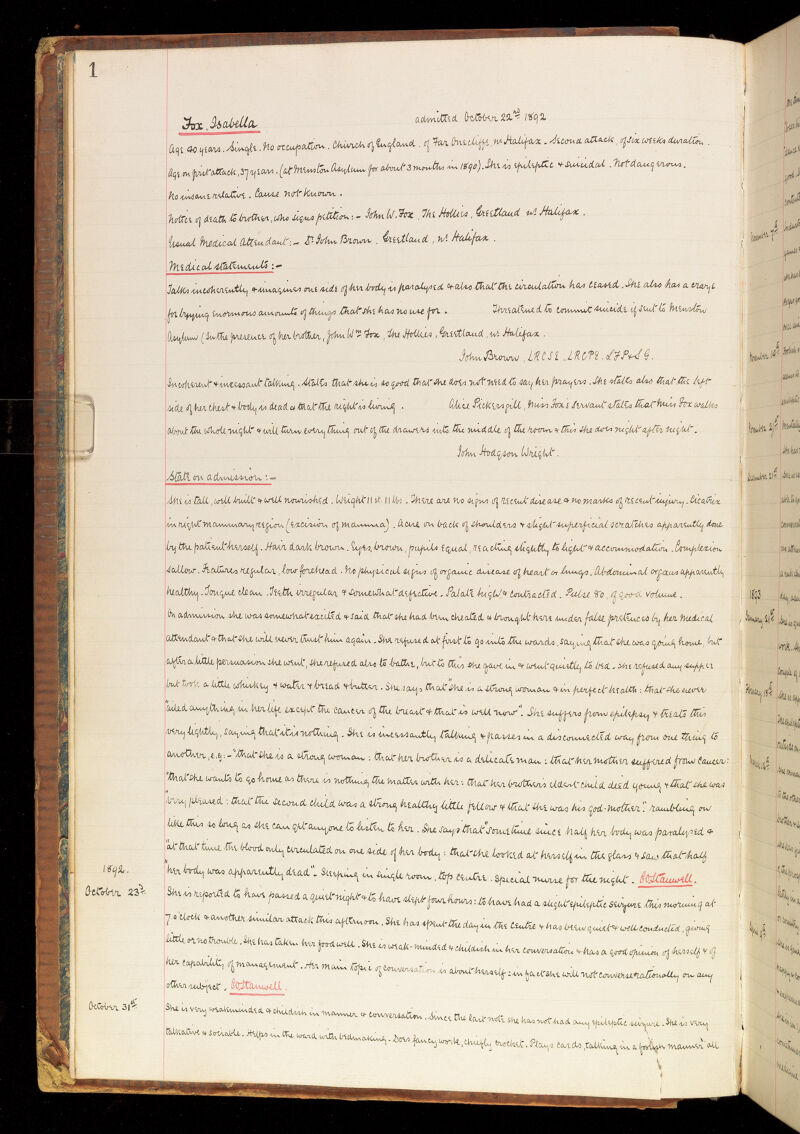 1
Fox, Isabella
admitted October 22nd 1892
Age 40 years. Single. No occupation. Church of England. of Far Onecliffe, nr Halifax. Second attack, of six weeks duration.
Age on first attack, 37 years. (at Menston Asylum for about 3 months in 1890). She is epileptic & suicidal. Not dangerous.
No insane relative. Cause not known.
Notice of death to brother, who signs petition:- John W. Fox, The Hollies, Greetland nr Halifax.
Usual Medical Attendant:- Dr John Brown, Greetland, nr Halifax.
Medical statements:-
Talks incoherently & imagines one side of her body is paralysed & also that the circulation has ceased. She also has a craze
for buying enormous amounts of things that she has no use for. Threatened to commit suicide if sent to Menston
Asylum (In the presence of her brother, John Wm Fox, The Hollies, Greetland, nr Halifax.
John Brown, LRCSE. LRCPE. LFP&SG.
Incoherent & incessant talking. States that she is so good that she does not need to say her prayers. She states also that the left
side of her chest & body is dead & that the right is living. Alice Pickersgill, Miss Fox's servant states that Miss Fox walks
about the whole night & will turn everything out of the drawers into the middle of the room & this she does night after night.
John Hodgson Wright.
State on admission:-
She is tall, well built & well nourished. Weight 11 st. 11 lbs. There are no signs of recent disease & no marks of recent injury. Cicatrix
in right mammary region (excision of mamma). Acne on back of shoulders & slight superficial scratches apparently done
by the patient herself. Hair dark brown. Eyes, brown, pupils equal, reacting slightly to light & accommodation. Complexion
sallow. Features regular, low forehead. No physical signs of organic disease of heart or lungs. Abdominal organs apparently
healthy. Tongue clean. Teeth irregular & somewhat defective. Palate high & contracted. Pulse 80, of good volume.
On admission she was somewhat excited & said that she had been cheated & brought here under false pretences by her medical
attendant & that she will never trust him again. She refused at first to go into the wards, saying that she was going home, but
after a little persuasion she went, she refused also to bathe, but to this she gave in & went quietly to bed. She refused any supper
but took a little whiskey & water & bread & butter. She says that "she is a strong woman & in perfect health: that she never
"ailed anything in her life except the cancer of the breast & that is well now". She suffers from epilepsy & treats this
very lightly, saying that it is nothing. She is incessantly talking & passes in a disconnected way from one thing to
another, e.g:- "that she is a strong woman: that her brother is a delicate man: that her mother suffered from cancer:
"that she wants to go home as there is nothing the matter with her: that her brother's eldest child died young & that she was
"very pleased: that the second child was a strong healthy little fellow & that she was his god-mother". rambling on
like this so long as she can get anyone to listen to her. She says that "sometime since half her body was paralysed &
"at that time the blood only circulated on one side of her body: that she looked at herself in the glass & saw that half
"her body was apparently dead". Sleeping in single room, top centre. Special nurse for the night.
1892.
October 23rd.
She is reported to have passed a quiet night & to have slept four hours: to have had a slight epileptic seizure this morning at
7 o'clock & another similar attack this afternoon. She has spent the day in the centre & has been quiet & well conducted, giving
little or no trouble. She has taken her food well. She is weak-minded & childish in her conversation & has a good opinion of herself & of
her capability of management. Her main topic of conversation is about herself: in fact she will not converse rationally on any
other subject.
October 31st
She is very weakminded & childish in manner & conversation. Since the last note she has not had any epileptic seizure. She is very
talkative & sociable. Helps in the ward with bedmaking. Does fancy work, chiefly crochet. Plays cards, talking in a foolish manner all